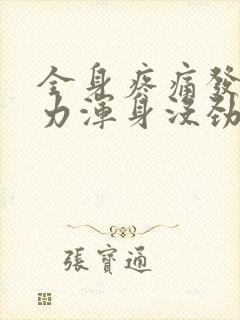 全身疼痛發
力渾身沒勁
張寶通